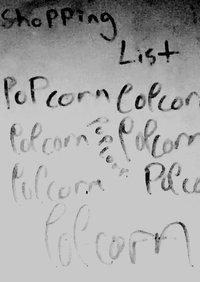 Shopping
List
PoPcorn Popcorn
Popcorn Popcorn
Popcorn
Popcorn